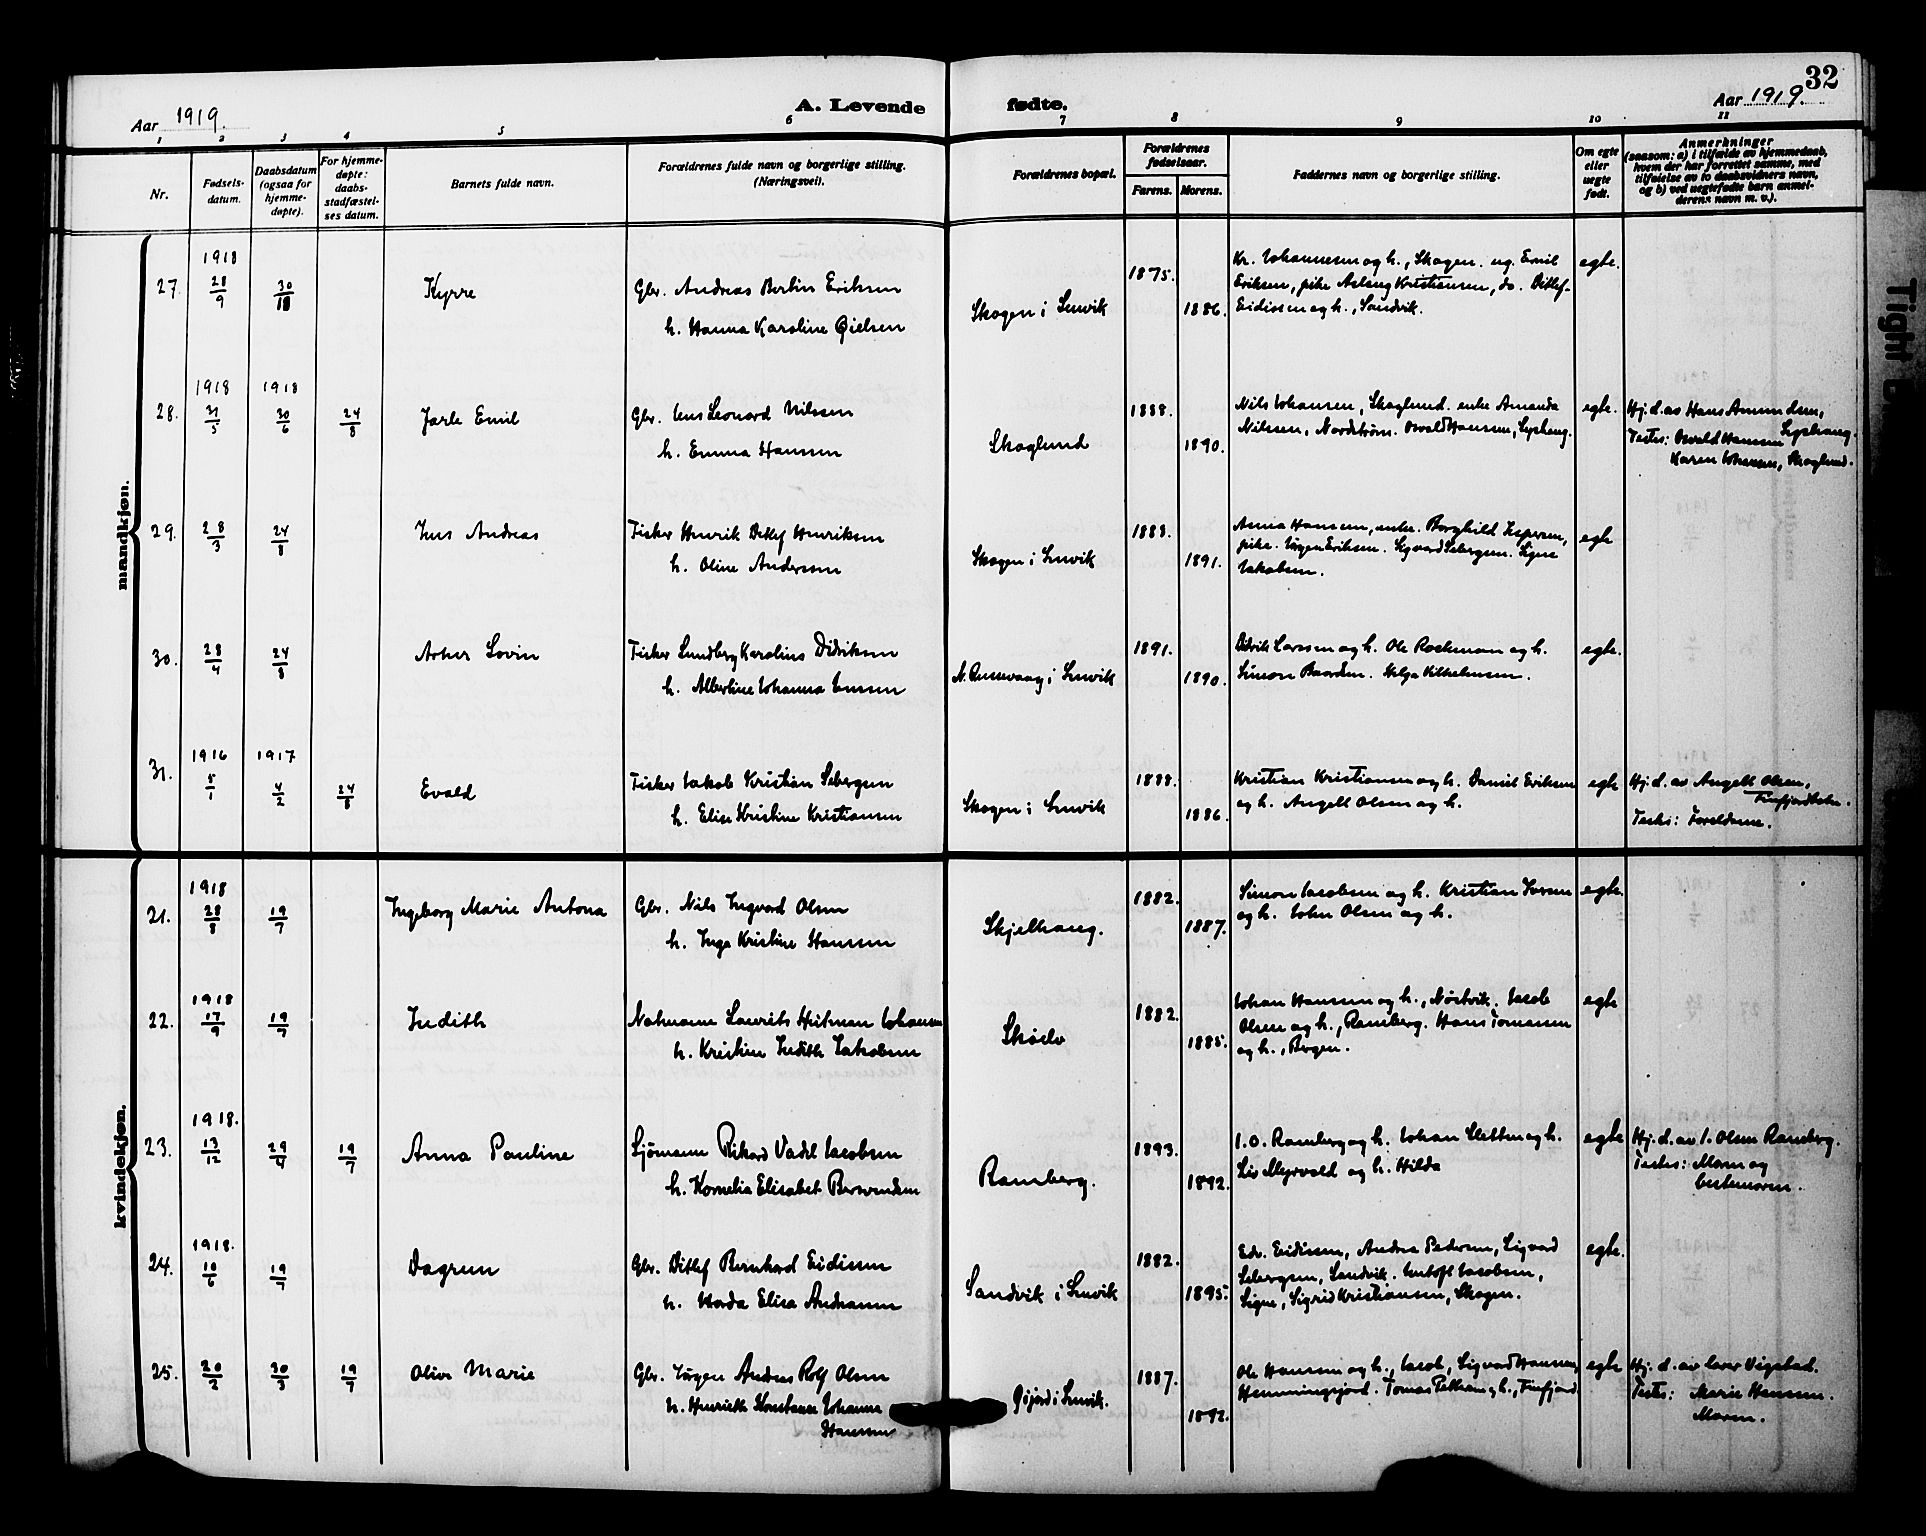 32
Aar 1919.
A. Levende fødte.
Aar 1919.
1 2 3 4 5 6 7 8 9 10 11
Nr.
Fødsels-
datum.
Daabsdatum
(ogsaa for
hjemme-
døpte).
For hjemme-
døpte:
daabs-
stadfæstel-
ses datum.
Barnets fulde navn.
Forældrenes fulde navn og borgerlige stilling.
(Næringsvei).
Forældrenes bopæl.
Forældrenes
fødselsaar.
Farens. Morens.
Faddernes navn og borgerlige stilling.
Om egte
eller
uegte
født.
Anmerkninger
(saasom: a) i tilfælde av hjemmedaab,
hvem der har forrettet samme, med
tilføielse av to daabsvidners navn,
og b) ved uegtefødte barn anmel-
derens navn m. v.).
mandkjøn.
27. 1918 28/9 30/18
Kyrre
Gbr. Andreas Berlin Eriksen
h. Hanna Karoline Øielsen
Skogen i Lenvik
1875.
1886.
Kr. Johannesen og h., Skogen. ug. Emil
Eriksen, pike Aslaug Kristiansen, do. Ditlef
Eidissen og h., Sandvik.
egte.
28. 1918 31/5 1918 30/6 24/8
Jarle Emil
Gbr. Jens Leonard Nilssen
h. Emma Hansen
Skoglund
1888.
1890.
Nils Johansen, Skoglund. enke Amanda
Nilssen, Nordstrøm. Osvald Hansen,
egte.
Hj. d. av Hans Amundsen,
Testes: Osvald Hansen
Karen Johansen, Skoglund.
29. 28/3 24/8
Jens Andreas
Fisker Henrik Ditlef Henriksen
h. Oline Andersen
Skogen i Lenvik
1888.
1891.
Anna Hansen, enke. Borghild Jespersen,
pike. Jørgen Eriksen. Sigvard Sebergsen. Signe
Jakobsen.
egte
30. 28/4 24/8
Asker Lovin
Fisker Lundberg Karolius Didriksen
h. Albertine Johanna Jenssen
N. Russevaag i Lenvik
1891.
1890.
Didrik Larssen og h. Ole Rochman og h.
Simon Baardsen. Helga Vilhelmsen.
egte.
31. 1916 5/1 1917 4/2 24/8
Evald
Fisker Jakob Kristian Sebergsen
h. Elise Kristine Kristiansen
Skogen i Lenvik
1888.
1886.
Kristian Kristiansen og h. Daniel Eriksen
og h. Angell Olsen og h.
egte
Hj. d. av Angell Olsen,
Finfjordbotn.
Testes: Foreldrene.
kvindekjøn.
21. 1918 28/8 19/7
Ingeborg Marie Antona
Gbr. Nils Ingvard Olsen
h. Inga Kristine Hanssen
Skjelhaug.
1882.
1887.
Simon Jacobsen og h. Kristian Iversen
og h. John Olsen og h.
egte.
22. 1918 17/9 19/7
Judith
Notmann Laurits Heitman Johansen
h. Kristine Judith Jakobsen
Skoelv
1882.
1885.
Johan Hanssen og h., Nøstvik. Jacob
Olsen og h., Ramberg. Hans Tomassen
og h., Bergen.
egte
23. 1918. 13/12 29/4 19/7
Anna Pauline
Sjømann Rikard Vadel Jacobsen
h. Kornelia Elisabet Berntsen
Ramberg.
1893.
1892.
I. O. Ramberg og h. Johan Sletten og h.
Liv Myrvold og h. Hilda
egte
Hj. d. av I. Olsen Ramberg.
Testes: Moren og
bestemoren.
24. 1918. 10/6 19/7
Dagrun
Gbr. Ditlef Bernhard Eidissen
h. Horda Elisa Andreassen
Sandvik i Lenvik
1882.
1895.
Edv. Eidissen, Andrea Pedersen, Sigvard
Sebergsen, Sandvik. Jentoft Jacobsen,
Signe, Sigrid Kristiansen, Skogen.
egte.
25. 20/2 30/3 19/7
Oliver Marie
Gbr. Jørgen Andreas Rolf Olsen
h. Henriette Konstanse Johanne
Hanssen
Gisjord i Lenvik.
1887.
1892.
Ole Hanssen og h., Jacob, Sigvard Hansen,
Hemmingsjord. Tomas Pettersen og h., Finfjord
egte
Hj. d. av lærer Vigstad.
Testes: Marie Hanssen.
Moren.